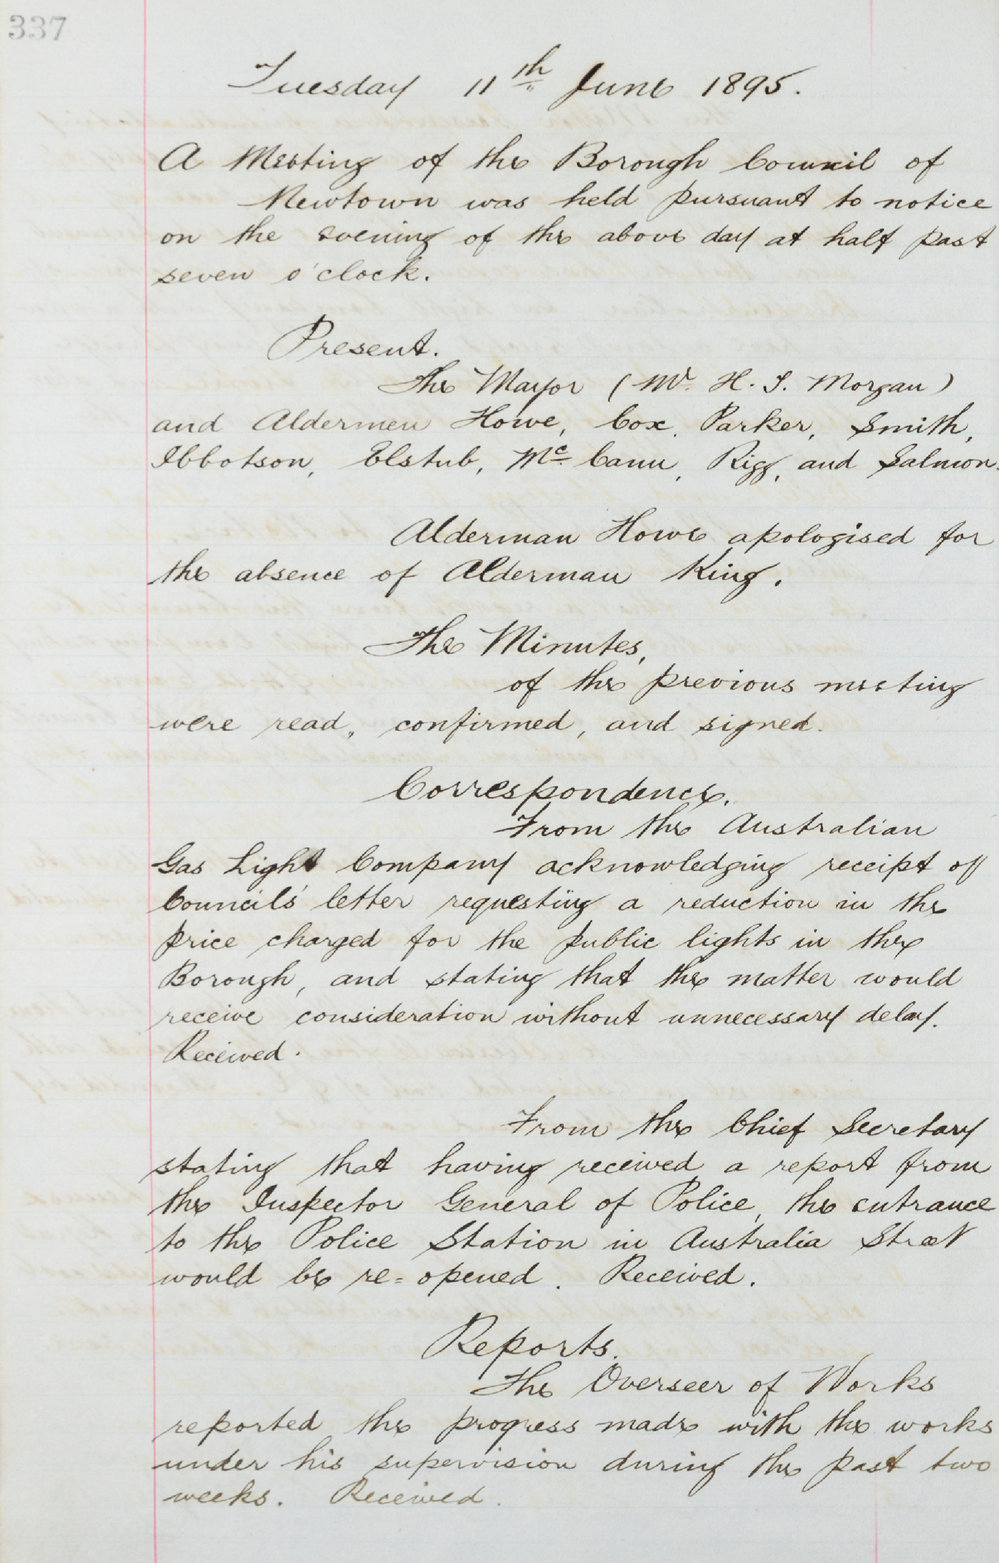 337
Tuesday 11th June 1895.
A Meeting of the Borough Council of
Newtown was held pursuant to notice
on the evening of the above day at half past
seven o'clock.
Present.
The Mayor (Mr. H. S. Morgan)
and Aldermen Howe, Cox, Parker, Smith,
Ibbotson, Elstub, Mc. Cann, Rigg, and Salmon.
Alderman Howe apologised for
the absence of Alderman King.
The Minutes,
of the previous meeting
were read, confirmed, and signed.
Correspondence.
From the Australian
Gas Light Company acknowledging receipt off
Councils' letter requesting a reduction in the
price charged for the public lights in the
Borough, and stating that the matter would
receive consideration without unnecessary delay.
Received.
From the Chief Secretary
stating that having received a report from
the Inspector General of Police, the entrance
to the Police Station in Australia Street
would be re=opened. Received.
Reports.
The Overseer of Works
reported the progress made with the works
under his supervision during the past two
weeks. Received.